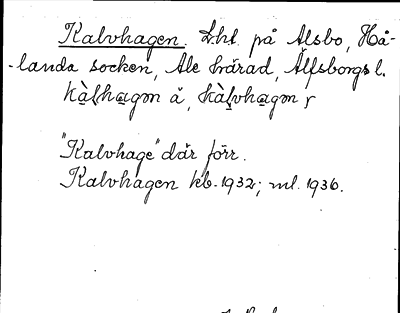 Kalvhagen. Lht. på Älsbo, Hå-
-landa socken, Ale härad, Älfsborgs l.
kàlhagɘn å, kàlvhagɘn
"Kalvhage" där förr.
Kalvhagen kb. 1932; ml. 1936.